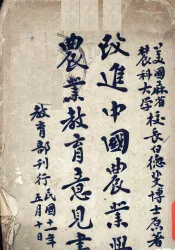 美國麻省
農科大學校長白德斐博士原著
改進中國農業與
農業教育意見書
教育部刊行
民國十一年
五月十日